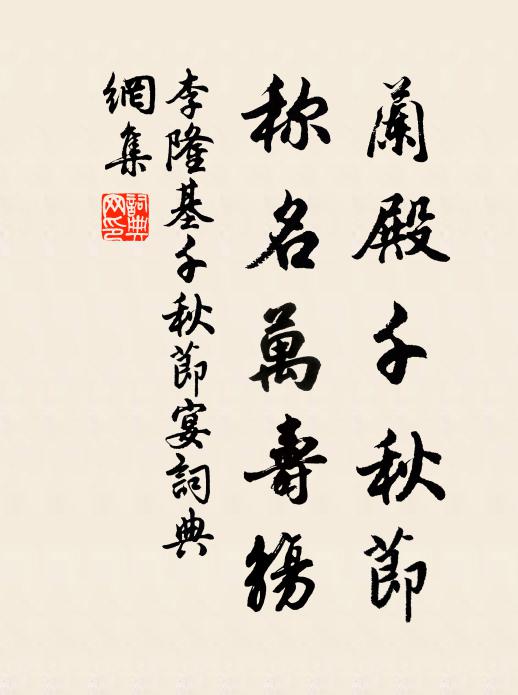 蘭殿千秋節
称名萬壽觴
李隆基千秋節宴詞典
網集
詞典网印